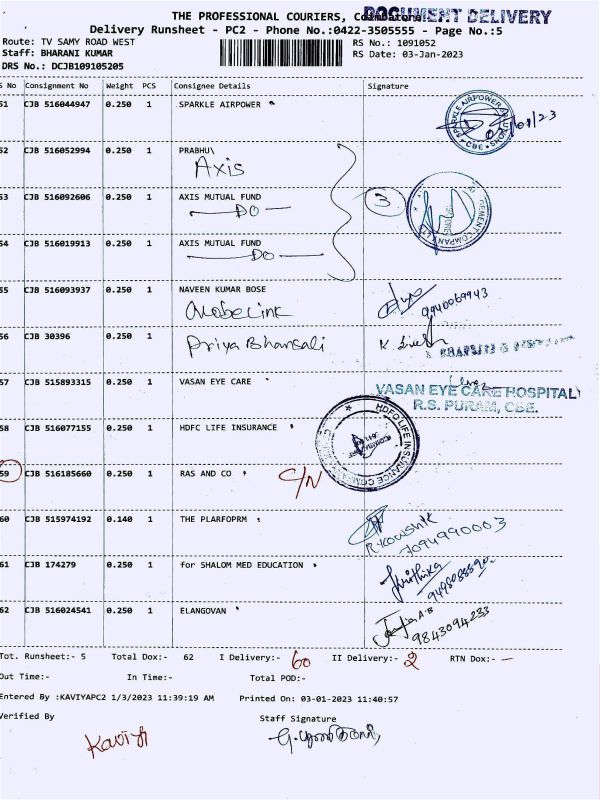 THE PROFESSIONAL COURIERS, Coimbatore
DOCUMENT DELIVERY
Delivery Runsheet - PC2 - Phone No.:0422-3505555 - Page No.:5
Route: TV SAMY ROAD WEST
RS No.: 1091052
Staff: BHARANI KUMAR
RS Date: 03-Jan-2023
DRS No.: DCJB109105205
S No Consignment No Weight PCS Consignee Details Signature
51 CJB 516044947 0.250 1 SPARKLE AIRPOWER
52 CJB 516052994 0.250 1 PRABHU\
Axis
53 CJB 516092606 0.250 1 AXIS MUTUAL FUND
DO
3
54 CJB 516019913 0.250 1 AXIS MUTUAL FUND
DO
55 CJB 516093937 0.250 1 NAVEEN KUMAR BOSE
9940069943
56 CJB 30396 0.250 1 Priya Bhansali
57 CJB 515893315 0.250 1 VASAN EYE CARE
VASAN EYE CARE HOSPITAL
R.S. PURAM, CBE.
58 CJB 516077155 0.250 1 HDFC LIFE INSURANCE
HDFC LIFE INSURANCE COMPANY
59 CJB 516185660 0.250 1 RAS AND CO
C/N
60 CJB 515974192 0.140 1 THE PLARFOPRM
R.Kowshik
7094990003
61 CJB 174279 0.250 1 for SHALOM MED EDUCATION
62 CJB 516024541 0.250 1 ELANGOVAN
9843094233
Tot. Runsheet:- 5 Total Dox:- 62 I Delivery:- 60 II Delivery:- 2 RTN Dox:- —
Out Time:- In Time:- Total POD:-
Entered By :KAVIYAPC2 1/3/2023 11:39:19 AM Printed On: 03-01-2023 11:40:57
Verified By Staff Signature
Kaviya